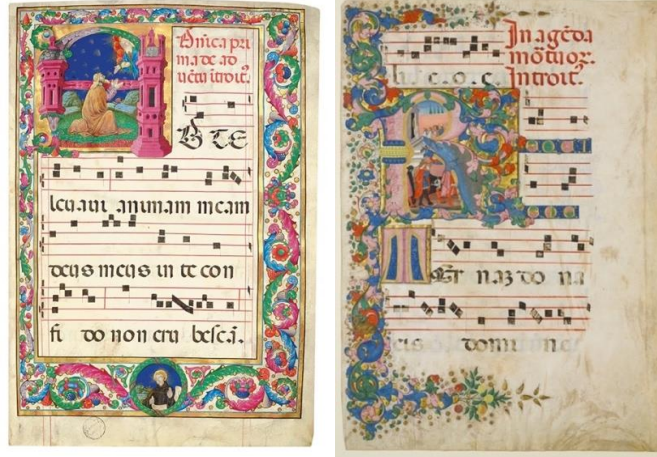 Dn̄ica pri
ma de ad
uētu ītroit.
D TE
leuaui animam meam
deus meus in te con
fi do non eru besc.ā.
In agēda
mōtuoꝝ.
Introit.
do na
eis domine